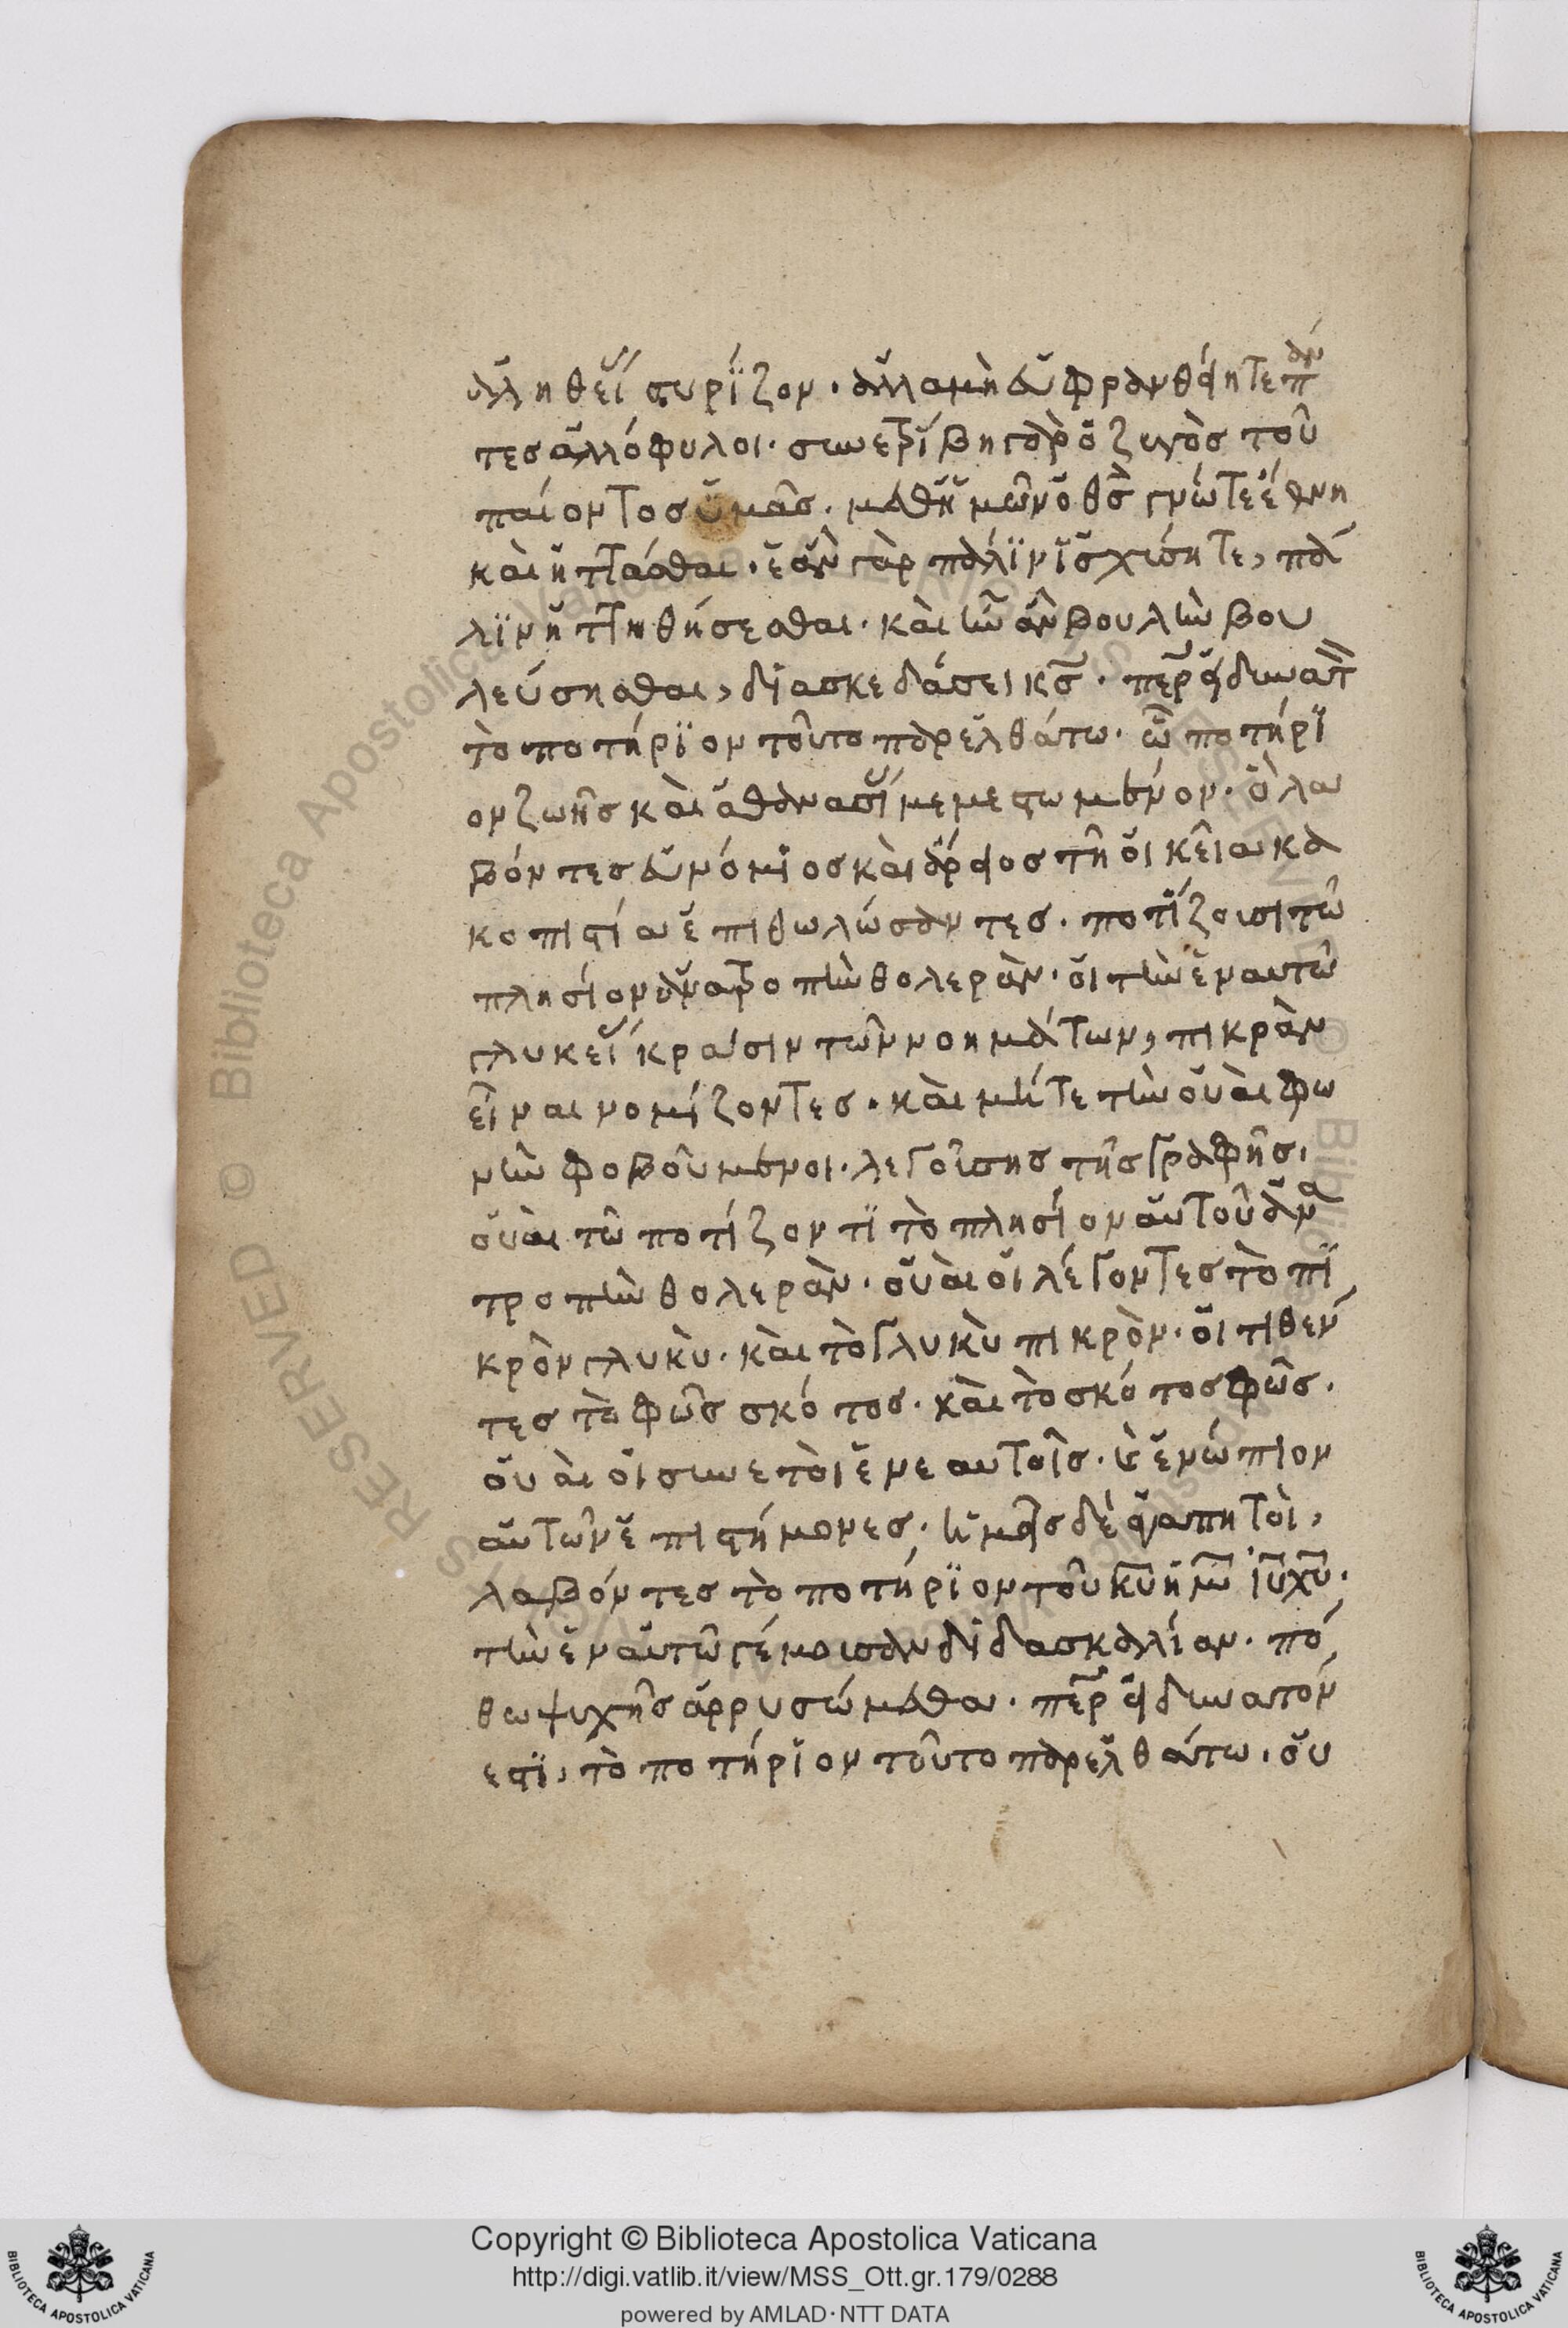 ἀληθείᾳ στυρίζον· ἀλλὰ μὴ εὐφρανθείητε πάν
τες ἀλλόφυλοι· συνετρίβη γὰρ ὁ ζυγὸς τοῦ
παίοντος ὑμᾶς· μεθ ἡμῶν ὁ θς γνῶτε ἔθνη
καὶ ἡττᾶσθαι· ἐὰν γὰρ πάλϊν ἰσχύσητε, πά
λϊν ἡττηθήσεσθαι· καὶ ἣν ἂν βουλὴν βου
λεύσησθαι, διασκεδάσει κς· περ εἰ δυνατ
τὸ ποτήρϊον τοῦτο παρελθάτω· ὦ ποτήρϊ
ον ζωῆς καὶ ἀθανασίᾳ μεμεστωμένον· ὃ λα
βόντες εὐνόμιος καὶ ἄρειος τῆ οἰκεία κα
κοπιστία ἐπιθωλώσαντες· ποτίζουσι τῶ
πλησίον ἀνατροπὴν θολεράν· οἱ τὴν ἐν αυτῶ
γλυκείᾳ κρᾶσιν τῶν νοημάτων, πικρὰν
εἶναι νομίζοντες· καὶ μήτε τὴν οὐαὶ φω
νὴν φοβούμενοι· λεγούσης τῆς γραφῆς·
οὐαὶ τῶ ποτίζοντϊ τὸ πλησίον αὐτοῦ ἀνα
τροπὴν θολεράν· οὐαὶ οἱ λέγοντες τὸ πϊ
κρὸν γλυκὺ· καὶ τὸ γλυκὺ πικρὸν· οἱ τιθέν
τες τὸ φῶς σκότος· καὶ τὸ σκότος φῶς·
οὐαὶ οἱ συνετοὶ ἐνε αυτοῖς· κ ἐνώπιον
αὐτῶν ἐπιστήμονες· ἡμεῖς δὲ ἀγαπητοὶ,
λαβόντες τὸ ποτήρϊον τοῦ κυ ἡμῶ ἰυ χυ·
τὴν ἐν αὐτῶ γέμουσαν διδασκαλίαν· πό
θω ψυχῆς ἀρρυσώμεθα· περ εἰ δυνατόν
εστϊ, τὸ ποτήριον τοῦτο παρελθάτω· οὐ
Copyright © Biblioteca Apostolica Vaticana
http://digi.vatlib.it/view/MSS_Ott.gr.179/0288
powered by AMLAD·NTT DATA